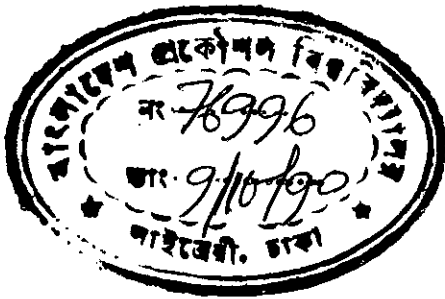 বাংলাদেশ প্রকৌশল বিশ্ববিদ্যালয়
নং 76996
তাং 9/10/90
লাইব্রেরী, ঢাকা